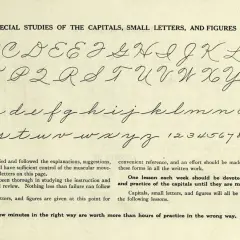 ECIAL STUDIES OF THE CAPITALS, SMALL LETTERS, AND FIGURES
C D E F G H I J K L
P Q R S T U V W X Y
d e f g h i j k l m n
u v w x y z 1 2 3 4 5 6 7 8
ed and followed the explanations, suggestions,
ll have conquered the muscular move-
letters on this page.
een thorough in studying the instruction and
l review. Nothing less than failure can follow
tters, and figures are given at this point for
convenient reference, and an effort should be ma
these forms in all the written work.
One lesson each week should be devot
and practice of the capitals until they are m
Capitals, small letters, and figures will be
the following lessons.
ew minutes in the right way are worth more than hours of practice in the wrong way.